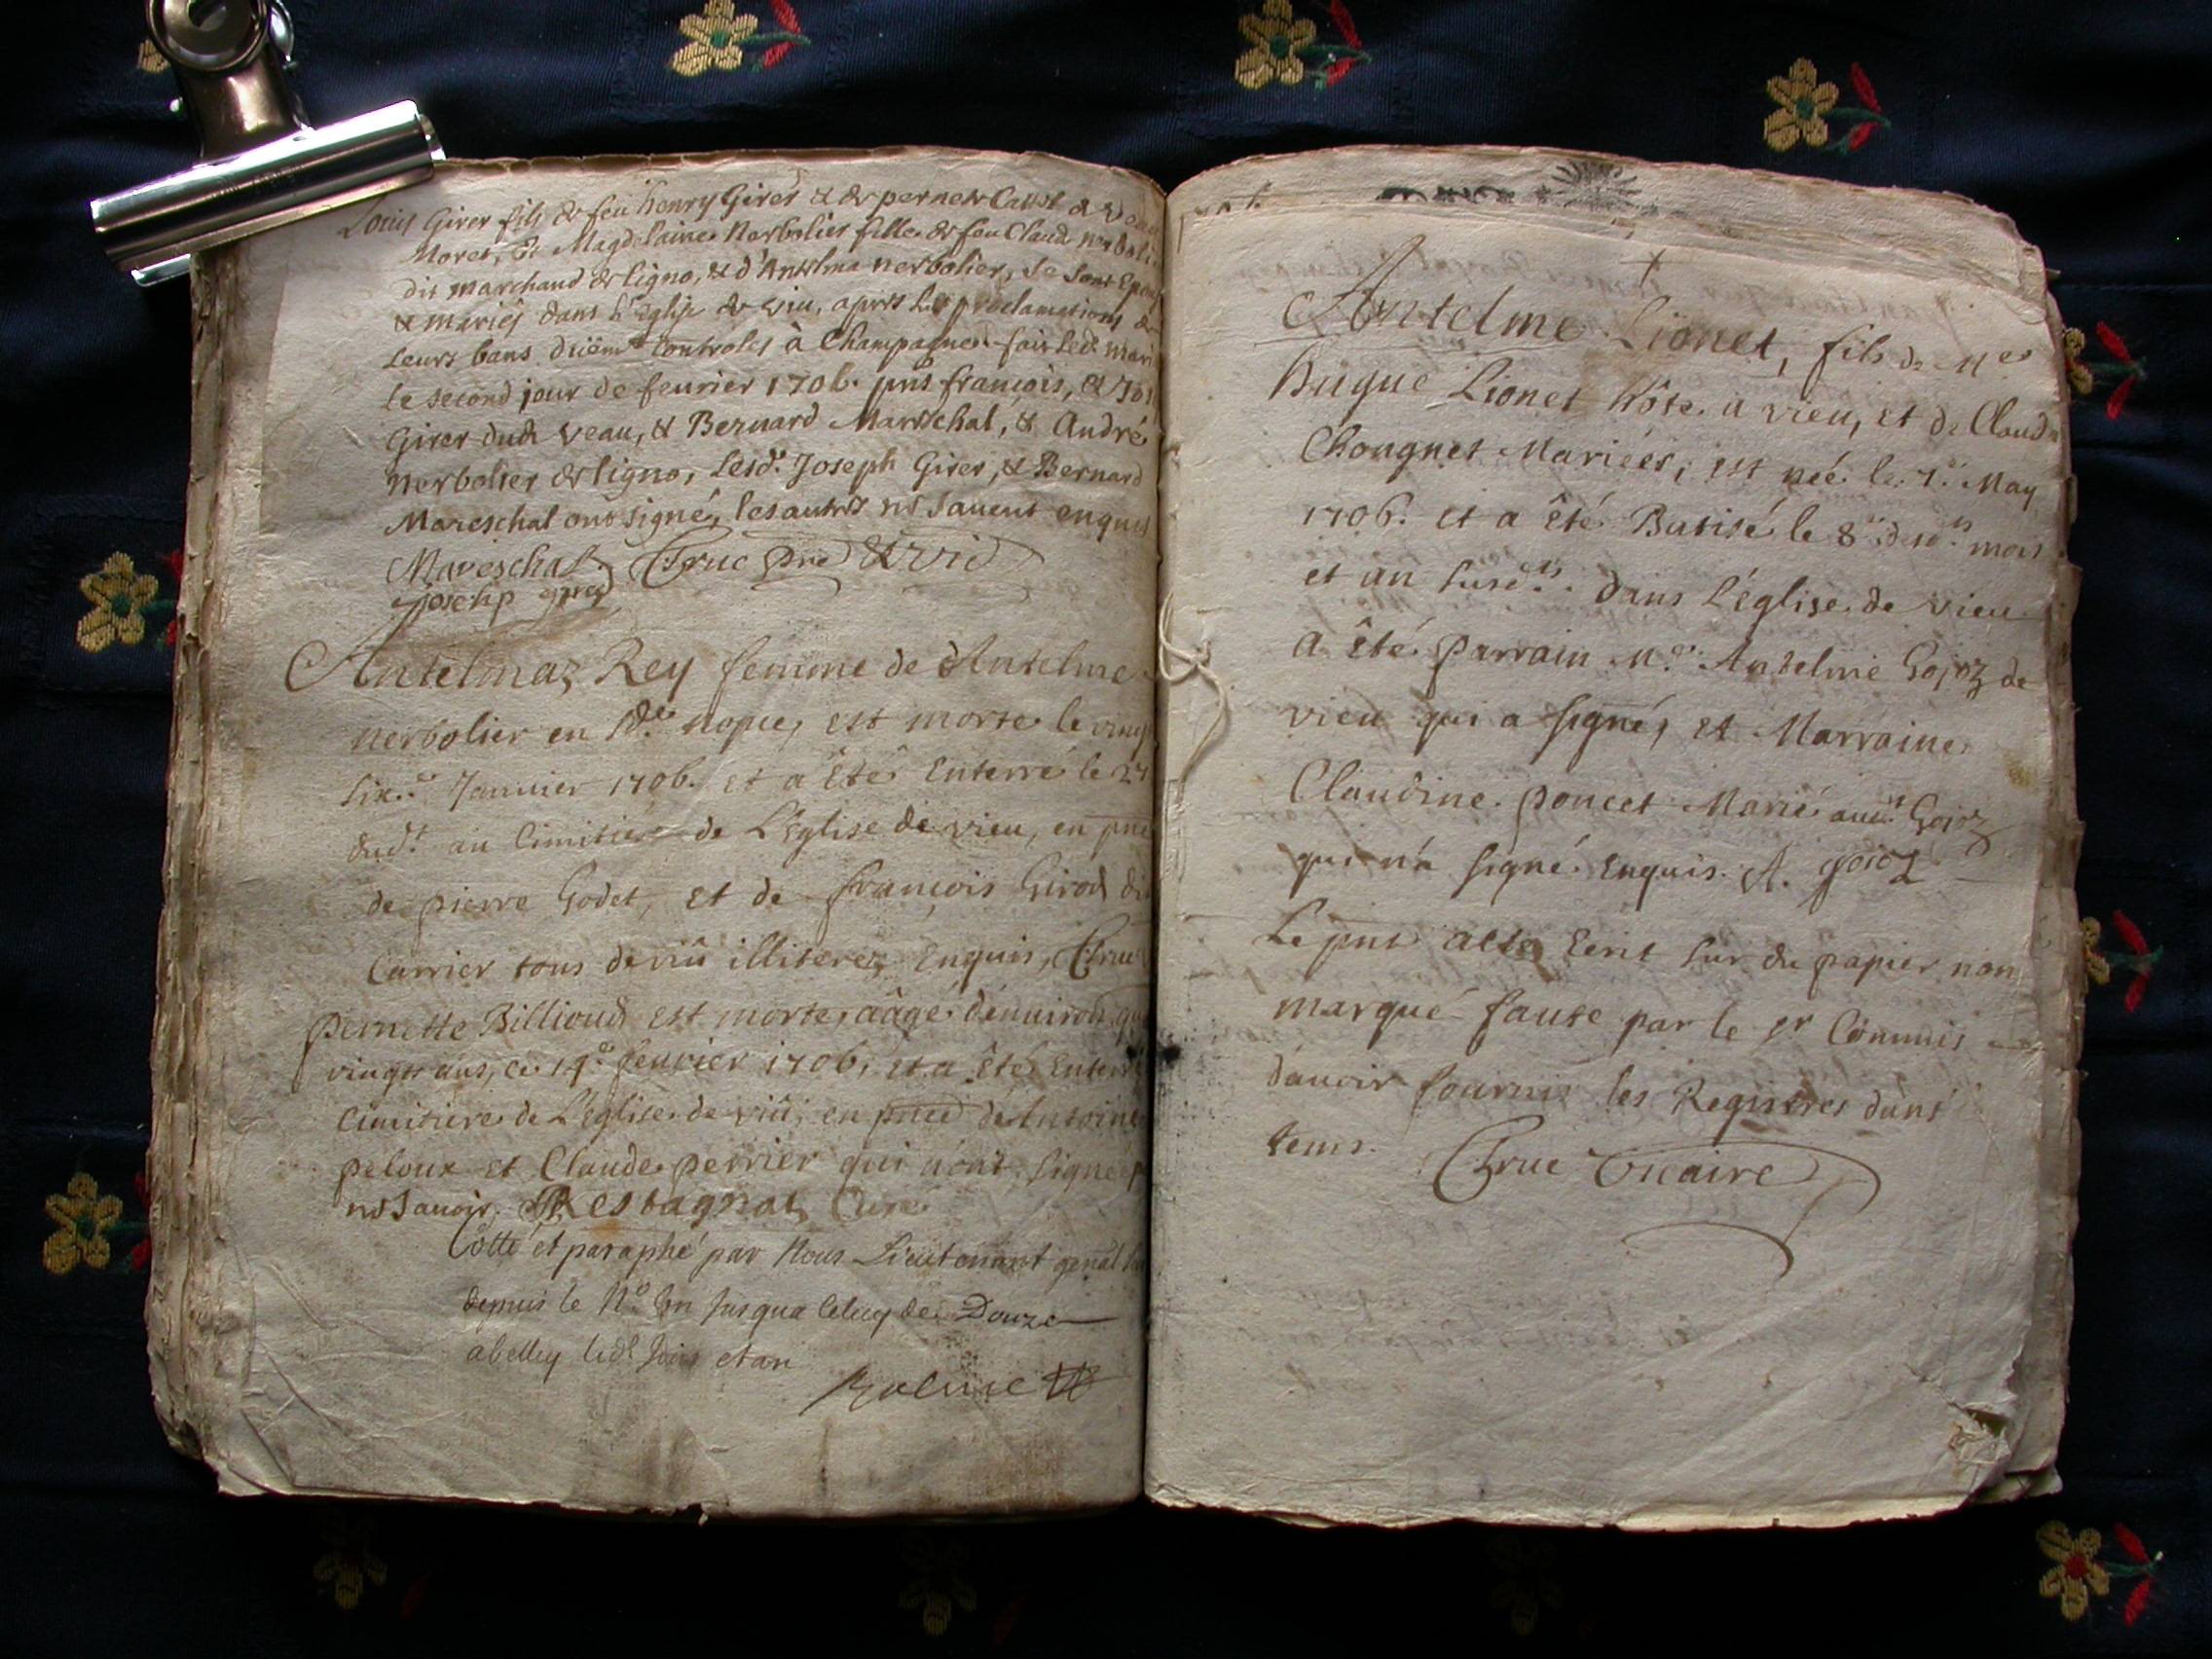 Louis Girer fils de feu henry Girer & de pernete
Moret, & Magdelaine Nerbolier fille de feu Claude
dit marchand de ligno, & d'Antelma nerbolier, se sont
& mariés dans l'Eglise de viu, après les proclamations de
leurs bans düem.t controles à Champagne. fait led.
le second jour de feurier 1706. pnts françois, &
Girer dud. Veau, & Bernard Mareschal, & André
Nerbolier de ligno, lesd. Joseph Girer, & Bernard
Mareschal ont signé, les autres ne sauent enquis
Mareschal. Truc pre & vic
Josehp
Antelmaz Rey femme de Antelme
nerbolier en 2.de nopce, est morte le vingt
six.e Januier 1706. et a êté Enterré le 27
dud.t au Cimitiere de L'église de vieu, en
de pierre Godet, et de françois Girod dit
Carrier tous de viû illiterez Enquis, Truc
Pernette Billioud est morte, aâgé d'enuiron
vingts ans, ce 14.e feurier 1706, et a êté Enterré
Cimitiere de L'église de viû, en pnce de Antoine
peloux et Claude perrier qui n'ont signé p
ne sauoir. Restagnat Curé
Cotté et paraphé par Nous Lieutenant genal
depuis le N.o Un Jusqua Celuy de Douze
abelley led. Jour et an
Antelme Lionet, fils de M.e
hugue Lionet hôte a vieu, et de Claud
Chougnet Mariées, est née le 7.e May
1706. et a êté Batisé le 8.e desd.ts mois
et an susd.ts. dans L'église de vieu
a êté parrain M.e Antelme Gojoz de
vieu qui a signé, et Marraine
Claudine poncet Marié aud.t Gojoz
qui n'a signé Enquis. A. gojoz
Le pnt acte Ecrit sur du papier non
marqué faute par le sr Commis
d'auoir fournis les Registres dans
tems. Truc Vicaire